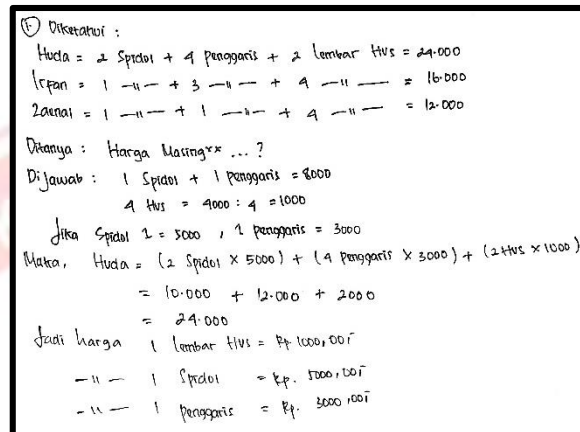 1. Diketahui :
Huda = 2 Spidol + 4 Penggaris + 2 lembar HVS = 24.000
Irfan = 1 —〃— + 3 —〃— + 4 —〃— = 16.000
Zaenal = 1 —〃— + 1 —〃— + 4 —〃— = 12.000
Ditanya : Harga Masing²× ... ?
Dijawab : 1 Spidol + 1 penggaris = 8000
4 HVS = 4000 : 4 = 1000
Jika Spidol 1 = 5000 , 1 penggaris = 3000
Maka, Huda = (2 Spidol × 5000) + (4 Penggaris × 3000) + (2 HVS × 1000)
= 10.000 + 12.000 + 2000
= 24.000
Jadi harga 1 lembar HVS = Rp 1000,00,-
—〃— 1 Spidol = Rp. 5000,00,-
—〃— 1 Penggaris = Rp. 3000,00,-